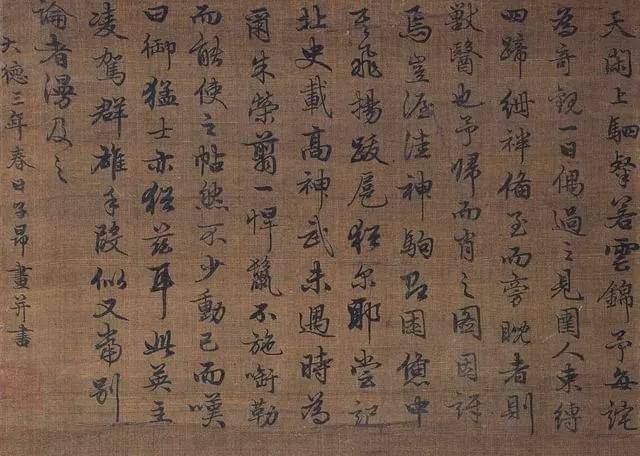 天閑上駟羣若雲錦予每詫
為奇觀一日偶過之見圉人束縛
四蹄絆備至而旁睨者則
獸醫也予歸而肖之圖因訝
焉豈渥洼神駒中
飛揚跋扈猶尔耶嘗記
北史載高神武未遇時為
爾朱榮翦一悍鬣不施銜勒
而能使之帖然不少動已而嘆
曰御猛士亦猶茲耳此英主
凌駕群雄手段似又當別
論者漫及之
大德三年春日子昂畫并書